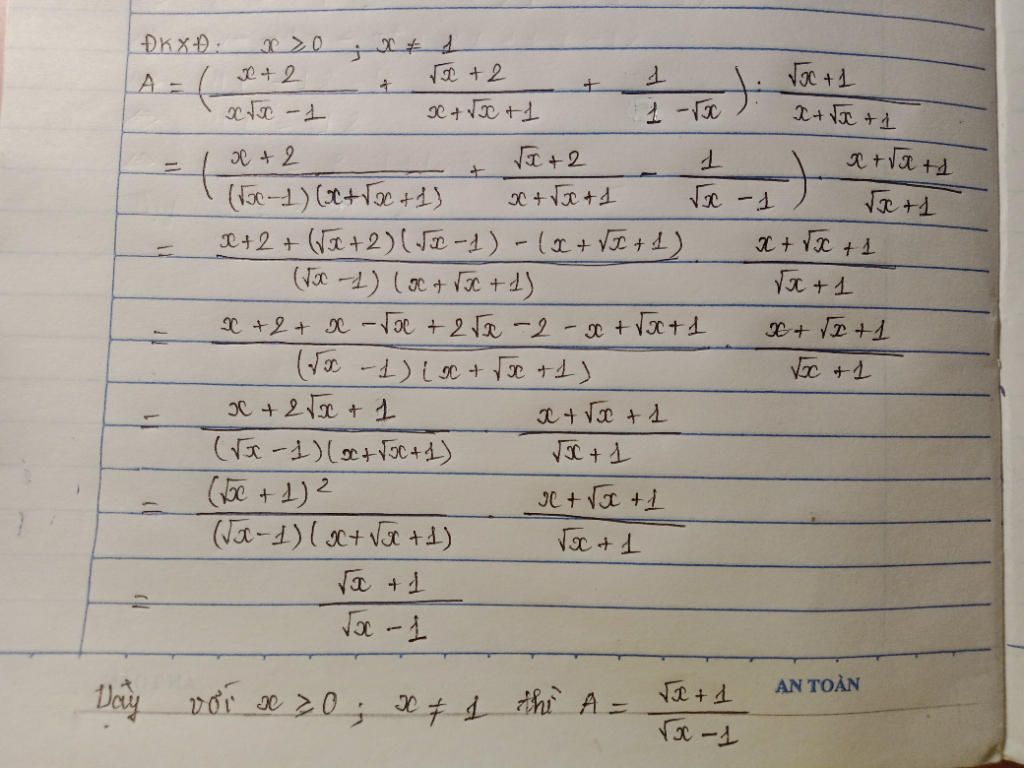 ĐKXĐ: x ≥ 0 ; x ≠ 1
A = ( (x+2)/(x√x - 1) + (√x + 2)/(x+√x+1) + 1/(1-√x) ) : (√x+1)/(x+√x+1)
= ( (x+2)/((√x-1)(x+√x+1)) + (√x+2)/(x+√x+1) - 1/(√x-1) ) · (x+√x+1)/(√x+1)
= (x+2+(√x+2)(√x-1)-(x+√x+1))/((√x-1)(x+√x+1)) · (x+√x+1)/(√x+1)
= (x+2+x-√x+2√x-2-x+√x+1)/((√x-1)(x+√x+1)) · (x+√x+1)/(√x+1)
= (x+2√x+1)/((√x-1)(x+√x+1)) · (x+√x+1)/(√x+1)
= (√x+1)²/((√x-1)(x+√x+1)) · (x+√x+1)/(√x+1)
= (√x+1)/(√x-1)
AN TOÀN
Vậy với x ≥ 0 ; x ≠ 1 thì A = (√x+1)/(√x-1)